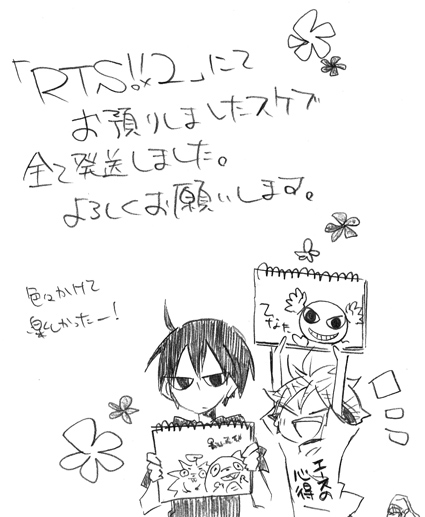 「RTS!!×2」にて
お預りしましたスケブ
全て発送しました。
よろしくお願いします。
色々かけて
楽しかったー!
エースの
心得